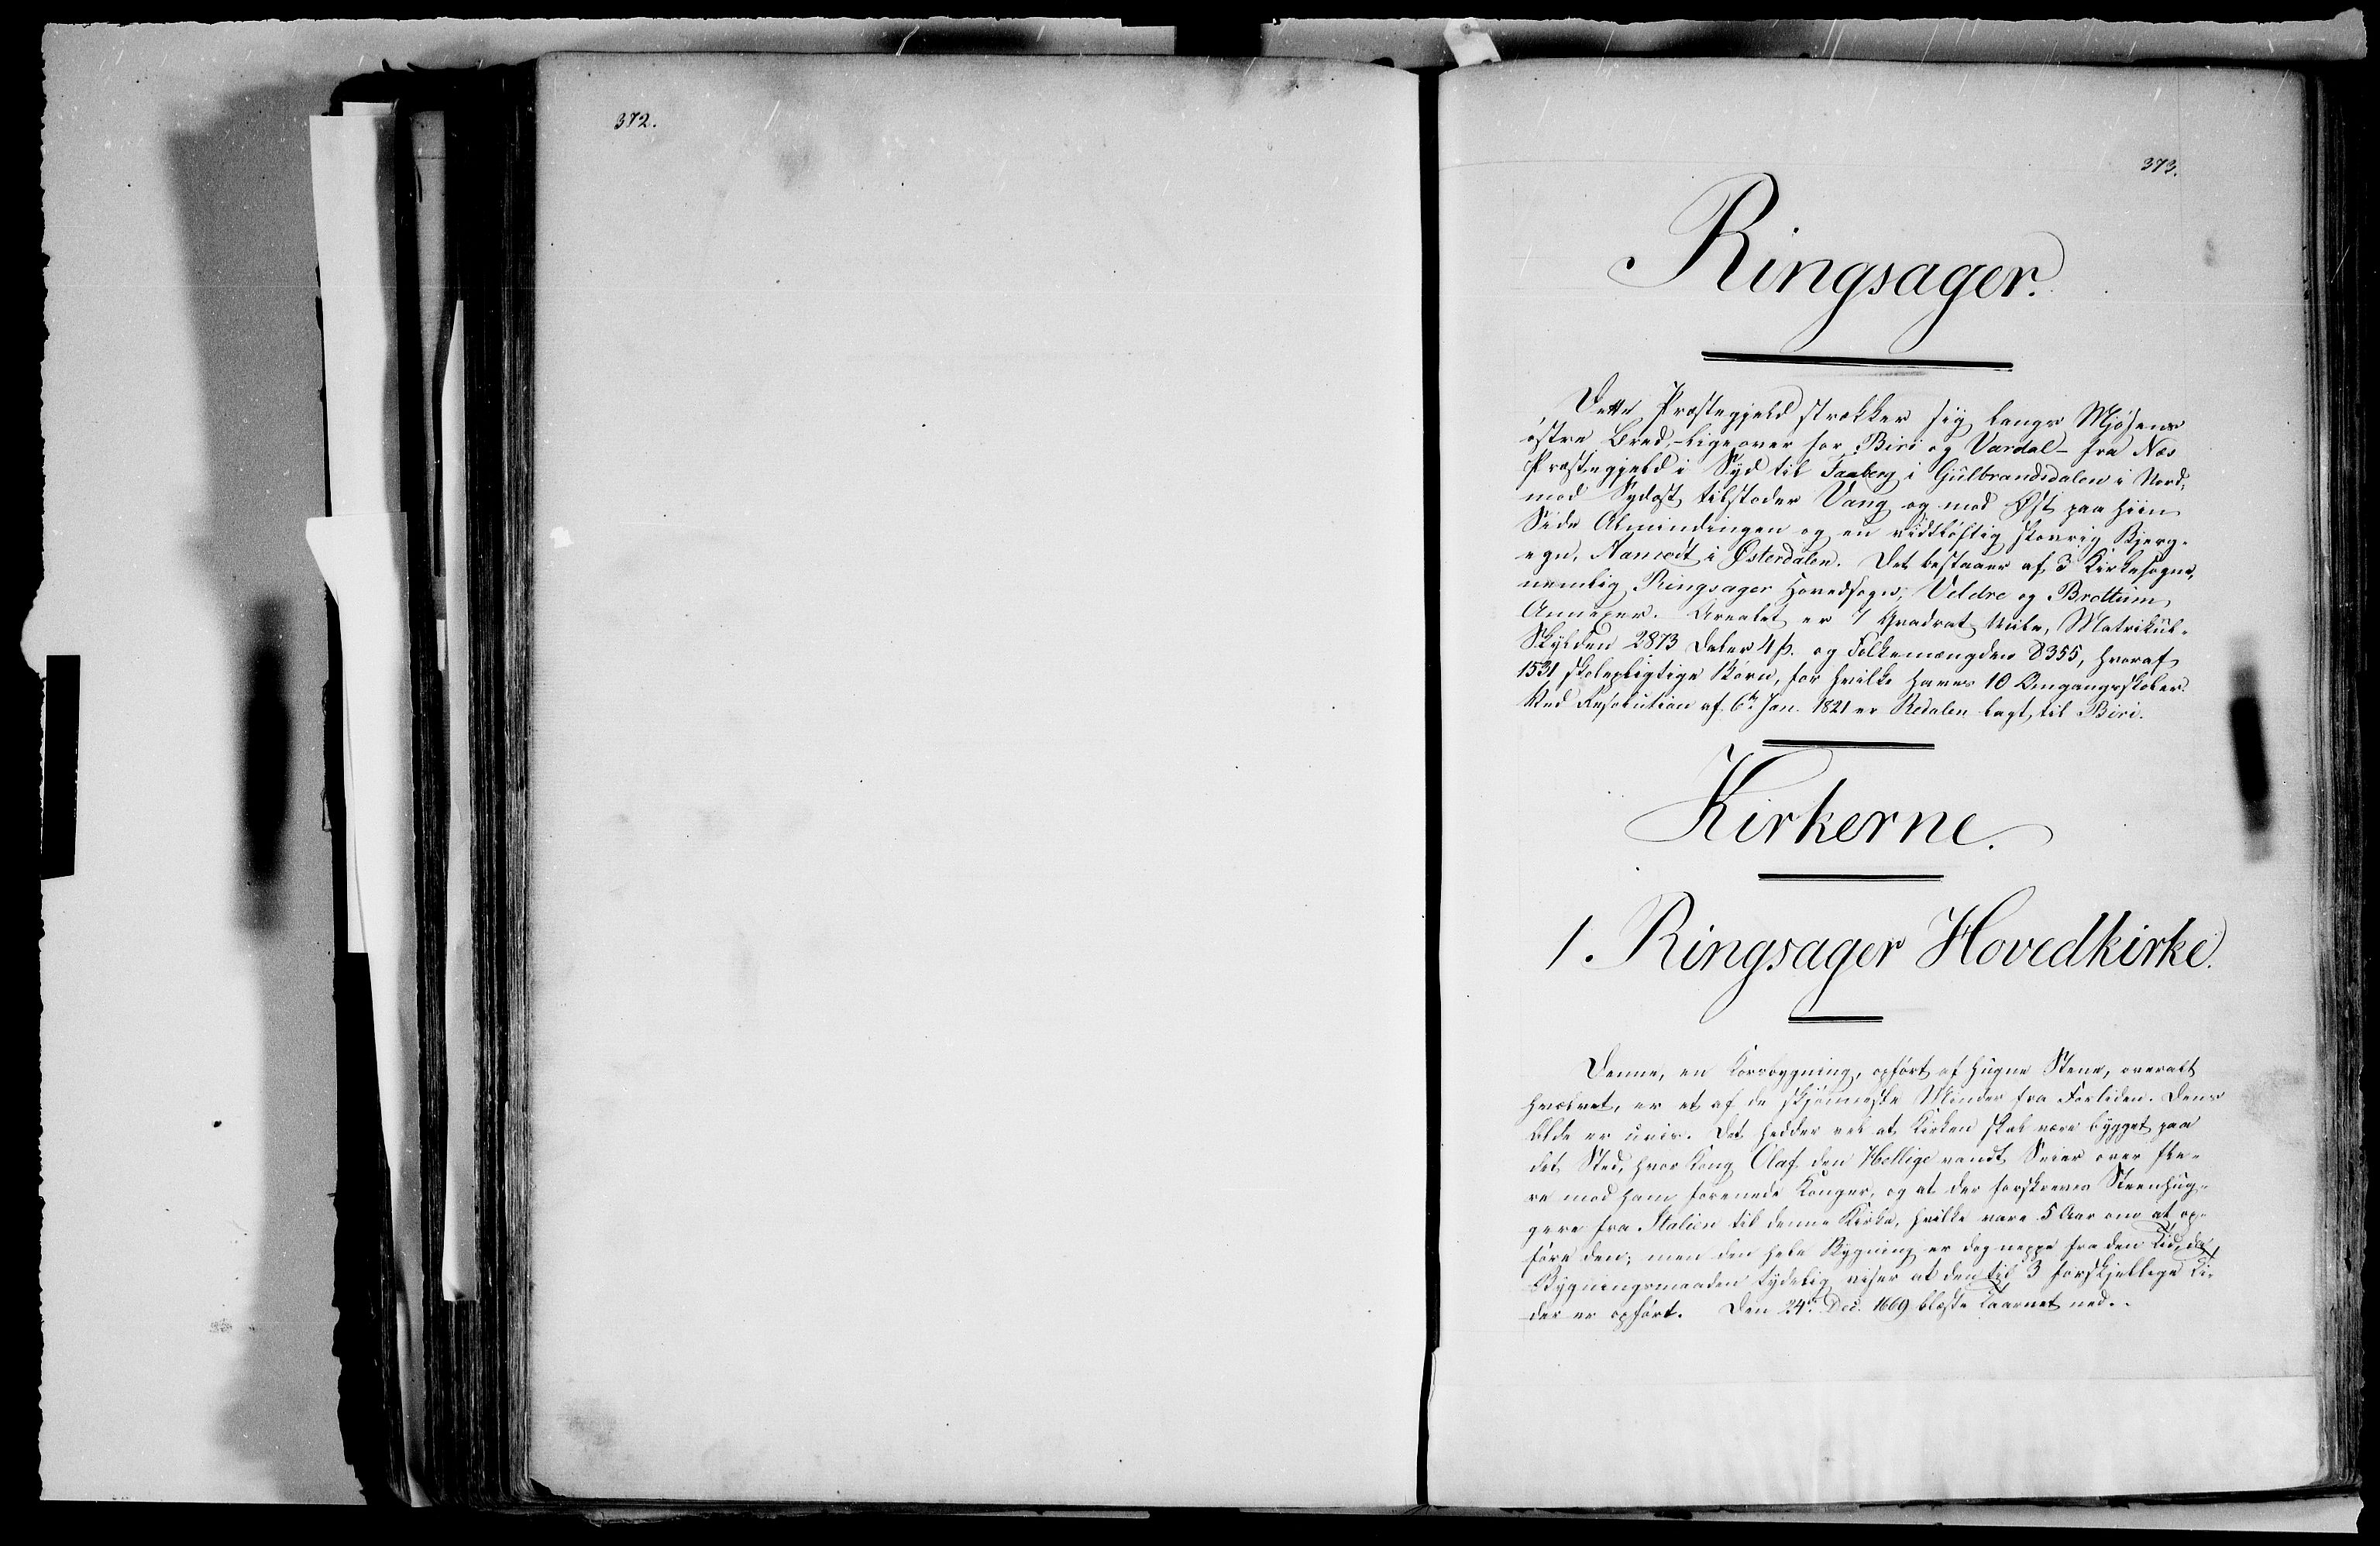 372.
373.
Ringsager.
Dette Præstegjeld strækker sig langs Mjøsens
østre Bred, ligeover for Biri og Vardal – fra Næs
Præstegjeld i Syd til Faaberg i Gulbrandsdalen i Nord;
mod Sydost tilstøder Vang og mod Øst paa hiin
Side Almindingen og en vidtløftig skovrig Bjerg-
egn, Aamodt i Østerdalen. Det bestaaer af 3 Kirkesogne,
nemlig Ringsager Hovedsogn, Veldre og Brøttum
Annexer. Arealet er 7 Qvadrat Mile, Matrikul-
Skylden 2873 Daler 4 ß. og Folkemængden 8355, hvoraf
1531 skolepligtige Børn, for hvilke haves 10 Omgangsskoler.
Ved Resolution af 6te Jan. 1821 er Redalen lagt til Biri.
Kirkerne.
1. Ringsager Hovedkirke.
Denne, en Korsbygning, opført af hugne Stene, overalt
hvælvet, er et af de skjønneste Minder fra Fortiden. Dens
Ælde er uvis. Det hedder vel at Kirken skal være bygget paa
det Sted, hvor Kong Olaf den Hellige vandt Seier over fle-
re mod ham forenede Konger, og at der forskreves Steenhug-
gere fra Italien til denne Kirke, hvilke vare 5 Aar om at op-
føre den; men den hele Bygning er dog neppe fra den Tid, da
Bygningsmaaden tydelig viser at den til 3 forskjellige Ti-
der er opført. Den 24de Dec. 1669 blæste Taarnet ned.